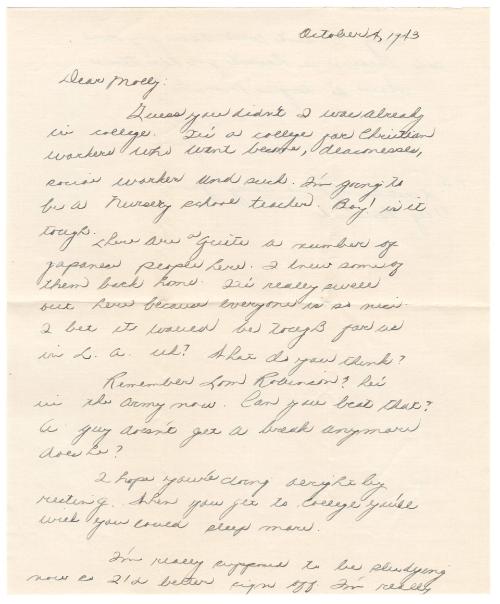 October 4, 1943
Dear Molly:
Guess you didn't I was already
in college. It's a college for Christian
workers who want become, deaconesses,
social worker and such. I'm going to
be a Nursery school teacher. Boy! is it
tough.
There are a quite a number of
Japanese people here. I knew some of
them back home. It's really swell
out here because everyone is so nice.
I bet it would be tough for us
in L.A. uh? What do you think?
Remember Tom Robinson? he's
in the army now. Can you beat that?
A guy doesn't get a break anymore
does he?
I hope you're doing alright by
resting. When you get to college you'll
wish you could sleep more.
I'm really supposed to be studying
now so I'd better sign off. I'm really